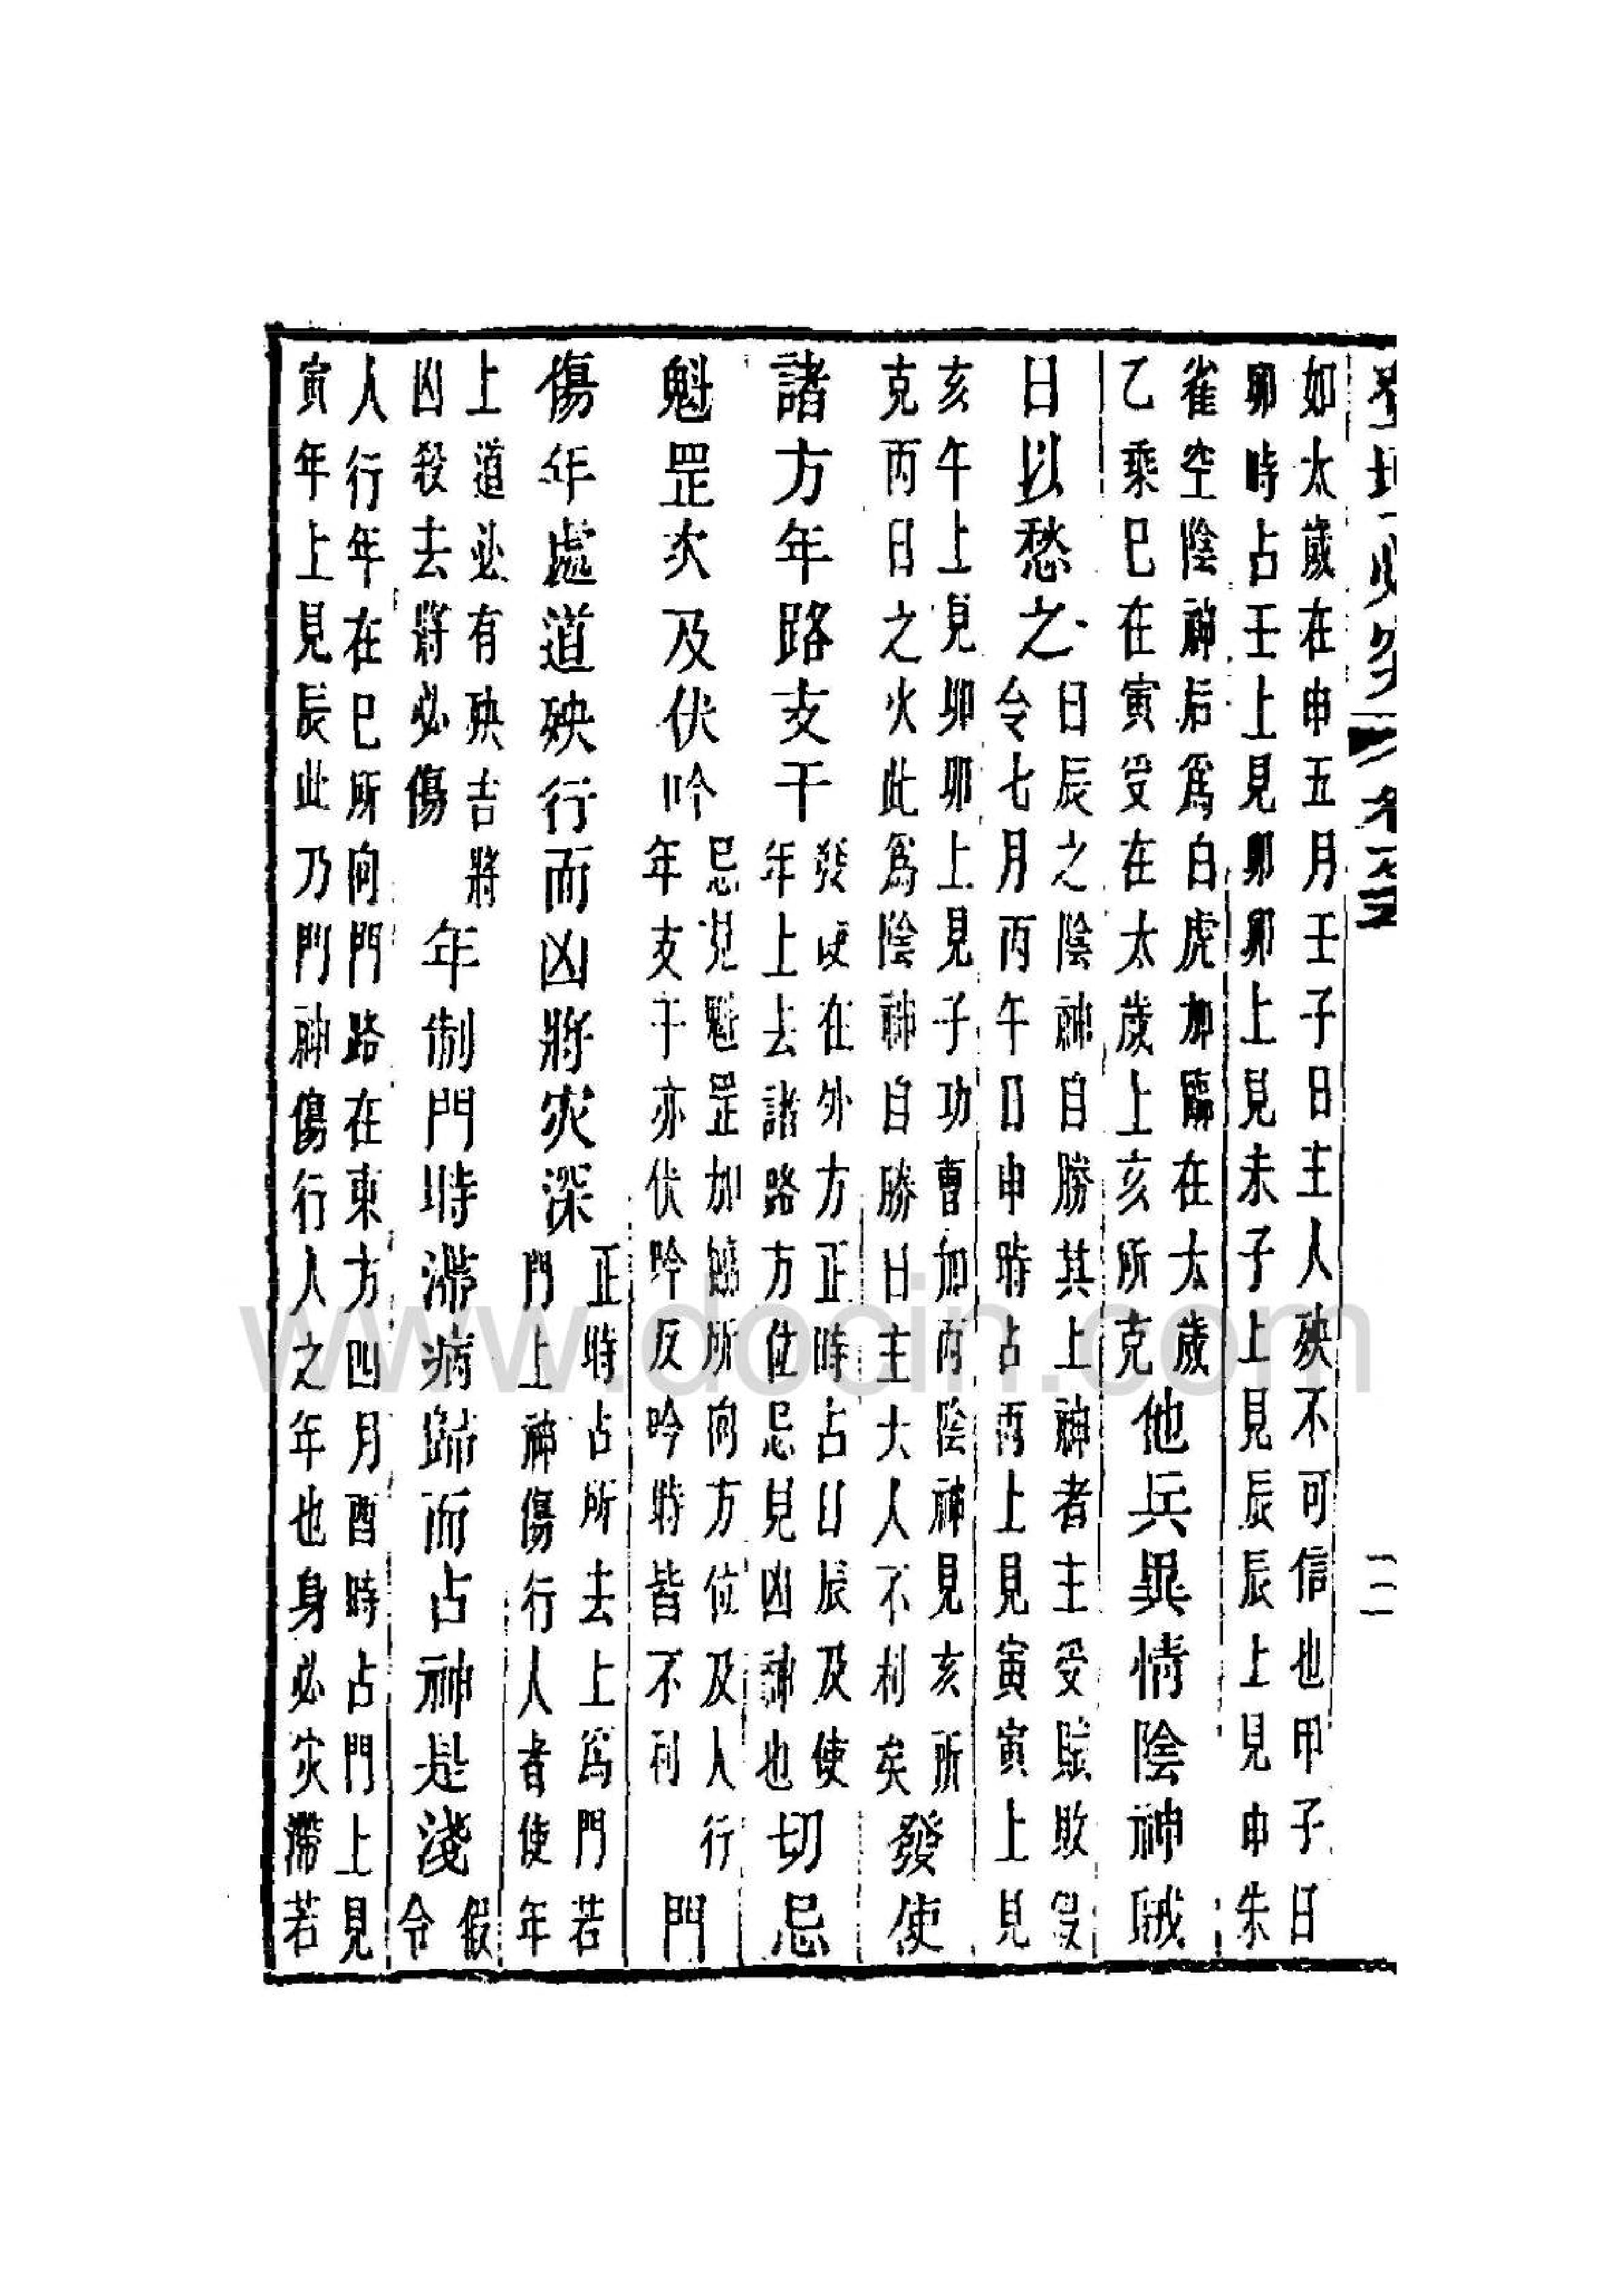 如太歲在申五月壬子日主人殃不可信也甲子日
卯時占壬上見卯卯上見未子上見辰辰上見申朱
雀空陰神后爲白虎加臨在太歲
乙乘巳在寅受在太歲上亥所克
他兵異情陰神賊
日以愁之
日辰之陰神自勝其上神者主受賊敗假
令七月丙午日申時占丙上見寅寅上見
亥午上見卯卯上見子功曹加丙陰神見亥所
克丙日之火此爲陰神自勝日主大人不利矣
發使
諸方年路支干
發使在外方正時占日辰及使
年上去諸路方位忌見凶神也
切忌
魁罡次及伏吟
忌見魁罡加臨所向方位及人行
年支干亦伏吟反吟時皆不利
門
傷年處道殃行而凶將灾深
正時占所去上爲門若
門上神傷行人者使年
上道必有殃吉將
凶殺去將必傷
年制門時滯病歸而占神是淺
假
令
人行年在巳所向門路在東方四月酉時占門上見
寅年上見辰此乃門神傷行人之年也身必灾滯若
www.docin.com